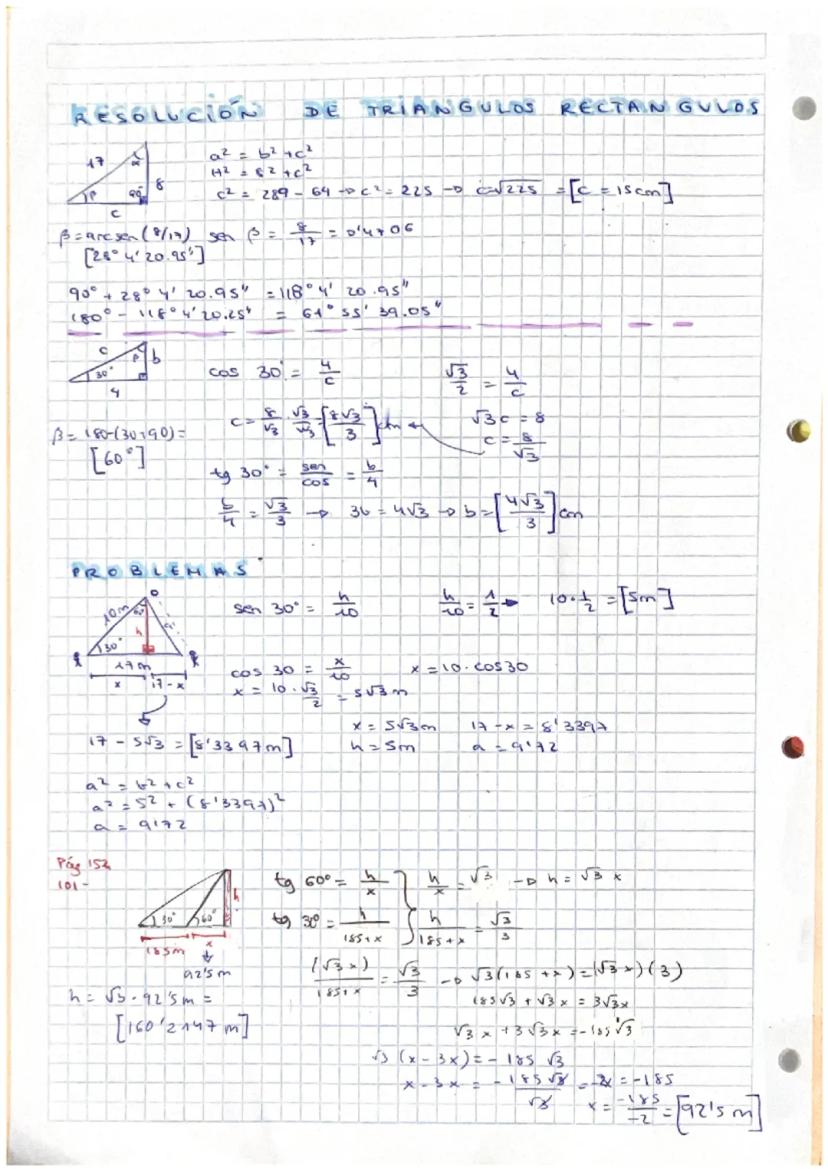 RESOLUCIÓN DE TRIÁNGULOS RECTANGULOS
17 α 8 β 90° c
a² = b² + c²
17² = 8² + c²
c² = 289 - 64 → c² = 225 → c=√225 = [c = 15cm]
β = arcsen (8/17) sen β = 8/17 = 0'4706
[28° 4' 20.95"]
90° + 28° 4' 20.95" = 118° 4' 20.95"
180° - 118° 4' 20.25" = 61° 55' 39.05"
c β b 30° 4
cos 30° = 4/c √3/2 = 4/c
c = 8/√3 · √3/√3 = [8√3/3] cm √3c = 8
β = 180-(30+90) = c = 8/√3
[60°]
tg 30° = sen/cos = b/4
b/4 = √3/3 → 3b = 4√3 → b = [4√3/3] cm
PROBLEMAS
10m 60° h a 30° 17m x 17-x
sen 30° = h/10 h/10 = 1/2 → 10·1/2 = [5m]
cos 30 = x/10 x = 10·cos30
x = 10·√3/2 = 5√3 m
x = 5√3m 17-x = 8'3397
17 - 5√3 = [8'3397m] h = 5m a = 9'72
a² = b² + c²
a² = 5² + (8'3397)²
a = 9'72
Pág 152
101-
30° 60° h 185m x
92'5m
tg 60° = h/x } h/x = √3 → h = √3 x
tg 30° = h/185+x } h/185+x = √3/3
(√3x)/185+x = √3/3 → √3(185 + x) = (√3x)(3)
h = √3 · 92'5m = 185√3 + √3x = 3√3x
[160'2147 m] √3x + 3√3x = -185√3
√3 (x - 3x) = - 185 √3
x - 3x = - 185√3/√3 = -2x = -185
x = -185/-2 = [92'5 m]